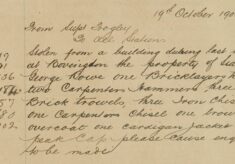 19th October 190
From Supt
To All Station
Stolen from a building during last
at Bovingdon the property of
George Rowe one Bricklayers
two Carpenters hammers three
Brick trowels, three Iron Chis
one Carpenters Chisel one brow
overcoat one Cardigan Jacket
peak Cap. please cause enq
to be made